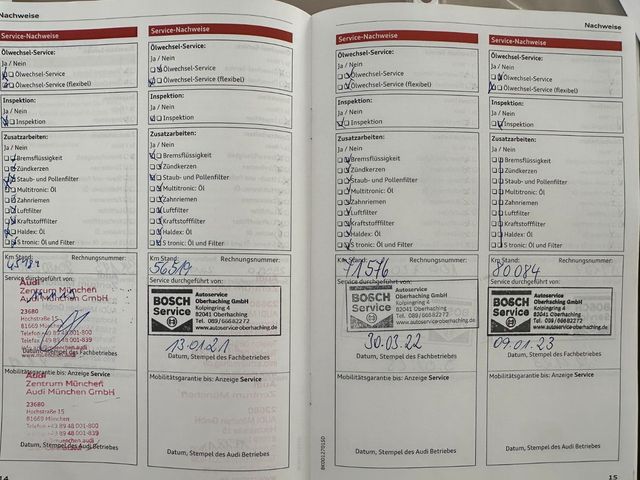 Nachweise
Service-Nachweise
Ölwechsel-Service:
Ja / Nein
Ölwechsel-Service
Ölwechsel-Service (flexibel)
Inspektion:
Ja / Nein
Inspektion
Zusatzarbeiten:
Ja / Nein
Bremsflüssigkeit
Zündkerzen
Staub- und Pollenfilter
Multitronic: Öl
Zahnriemen
Luftfilter
Kraftstofffilter
Haldex: Öl
S tronic: Öl und Filter
Km Stand: Rechnungsnummer:
Service durchgeführt von:
Audi
Zentrum München
Audi München GmbH
23680
Hochstraße 15
81669 München
Telefon +49 89 48 001-800
Telefax +49 89 48 001-839
Datum, Stempel des Fachbetriebes
Mobilitätsgarantie bis: Anzeige Service
Audi
Zentrum München
Audi München GmbH
23680
Hochstraße 15
81669 München
Telefon +49 89 48 001-800
Datum, Stempel des Audi Betriebes
14
Service-Nachweise
Ölwechsel-Service:
Ja / Nein
Ölwechsel-Service
Ölwechsel-Service (flexibel)
Inspektion:
Ja / Nein
Inspektion
Zusatzarbeiten:
Ja / Nein
Bremsflüssigkeit
Zündkerzen
Staub- und Pollenfilter
Multitronic: Öl
Zahnriemen
Luftfilter
Kraftstofffilter
Haldex: Öl
S tronic: Öl und Filter
Km Stand: Rechnungsnummer:
56517
Service durchgeführt von:
BOSCH
Service
Autoservice
Oberhaching GmbH
Kolpingring 4
82041 Oberhaching
Tel. 089/66682272
www.autoservice-oberhaching.de
13.01.21
Datum, Stempel des Fachbetriebes
Mobilitätsgarantie bis: Anzeige Service
Datum, Stempel des Audi Betriebes
Nachweise
Service-Nachweise
Ölwechsel-Service:
Ja / Nein
Ölwechsel-Service
Ölwechsel-Service (flexibel)
Inspektion:
Ja / Nein
Inspektion
Zusatzarbeiten:
Ja / Nein
Bremsflüssigkeit
Zündkerzen
Staub- und Pollenfilter
Multitronic: Öl
Zahnriemen
Luftfilter
Kraftstofffilter
Haldex: Öl
S tronic: Öl und Filter
Km Stand: Rechnungsnummer:
71576
Service durchgeführt von:
BOSCH
Service
Autoservice
Oberhaching GmbH
Kolpingring 4
82041 Oberhaching
Tel. 089/66682272
www.autoservice-oberhaching.de
30.03.22
Datum, Stempel des Fachbetriebes
Mobilitätsgarantie bis: Anzeige Service
Datum, Stempel des Audi Betriebes
Service-Nachweise
Ölwechsel-Service:
Ja / Nein
Ölwechsel-Service
Ölwechsel-Service (flexibel)
Inspektion:
Ja / Nein
Inspektion
Zusatzarbeiten:
Ja / Nein
Bremsflüssigkeit
Zündkerzen
Staub- und Pollenfilter
Multitronic: Öl
Zahnriemen
Luftfilter
Kraftstofffilter
Haldex: Öl
S tronic: Öl und Filter
Km Stand: Rechnungsnummer:
80084
Service durchgeführt von:
BOSCH
Service
Autoservice
Oberhaching GmbH
Kolpingring 4
82041 Oberhaching
Tel. 089/66682272
www.autoservice-oberhaching.de
09.01.23
Datum, Stempel des Fachbetriebes
Mobilitätsgarantie bis: Anzeige Service
Datum, Stempel des Audi Betriebes
15